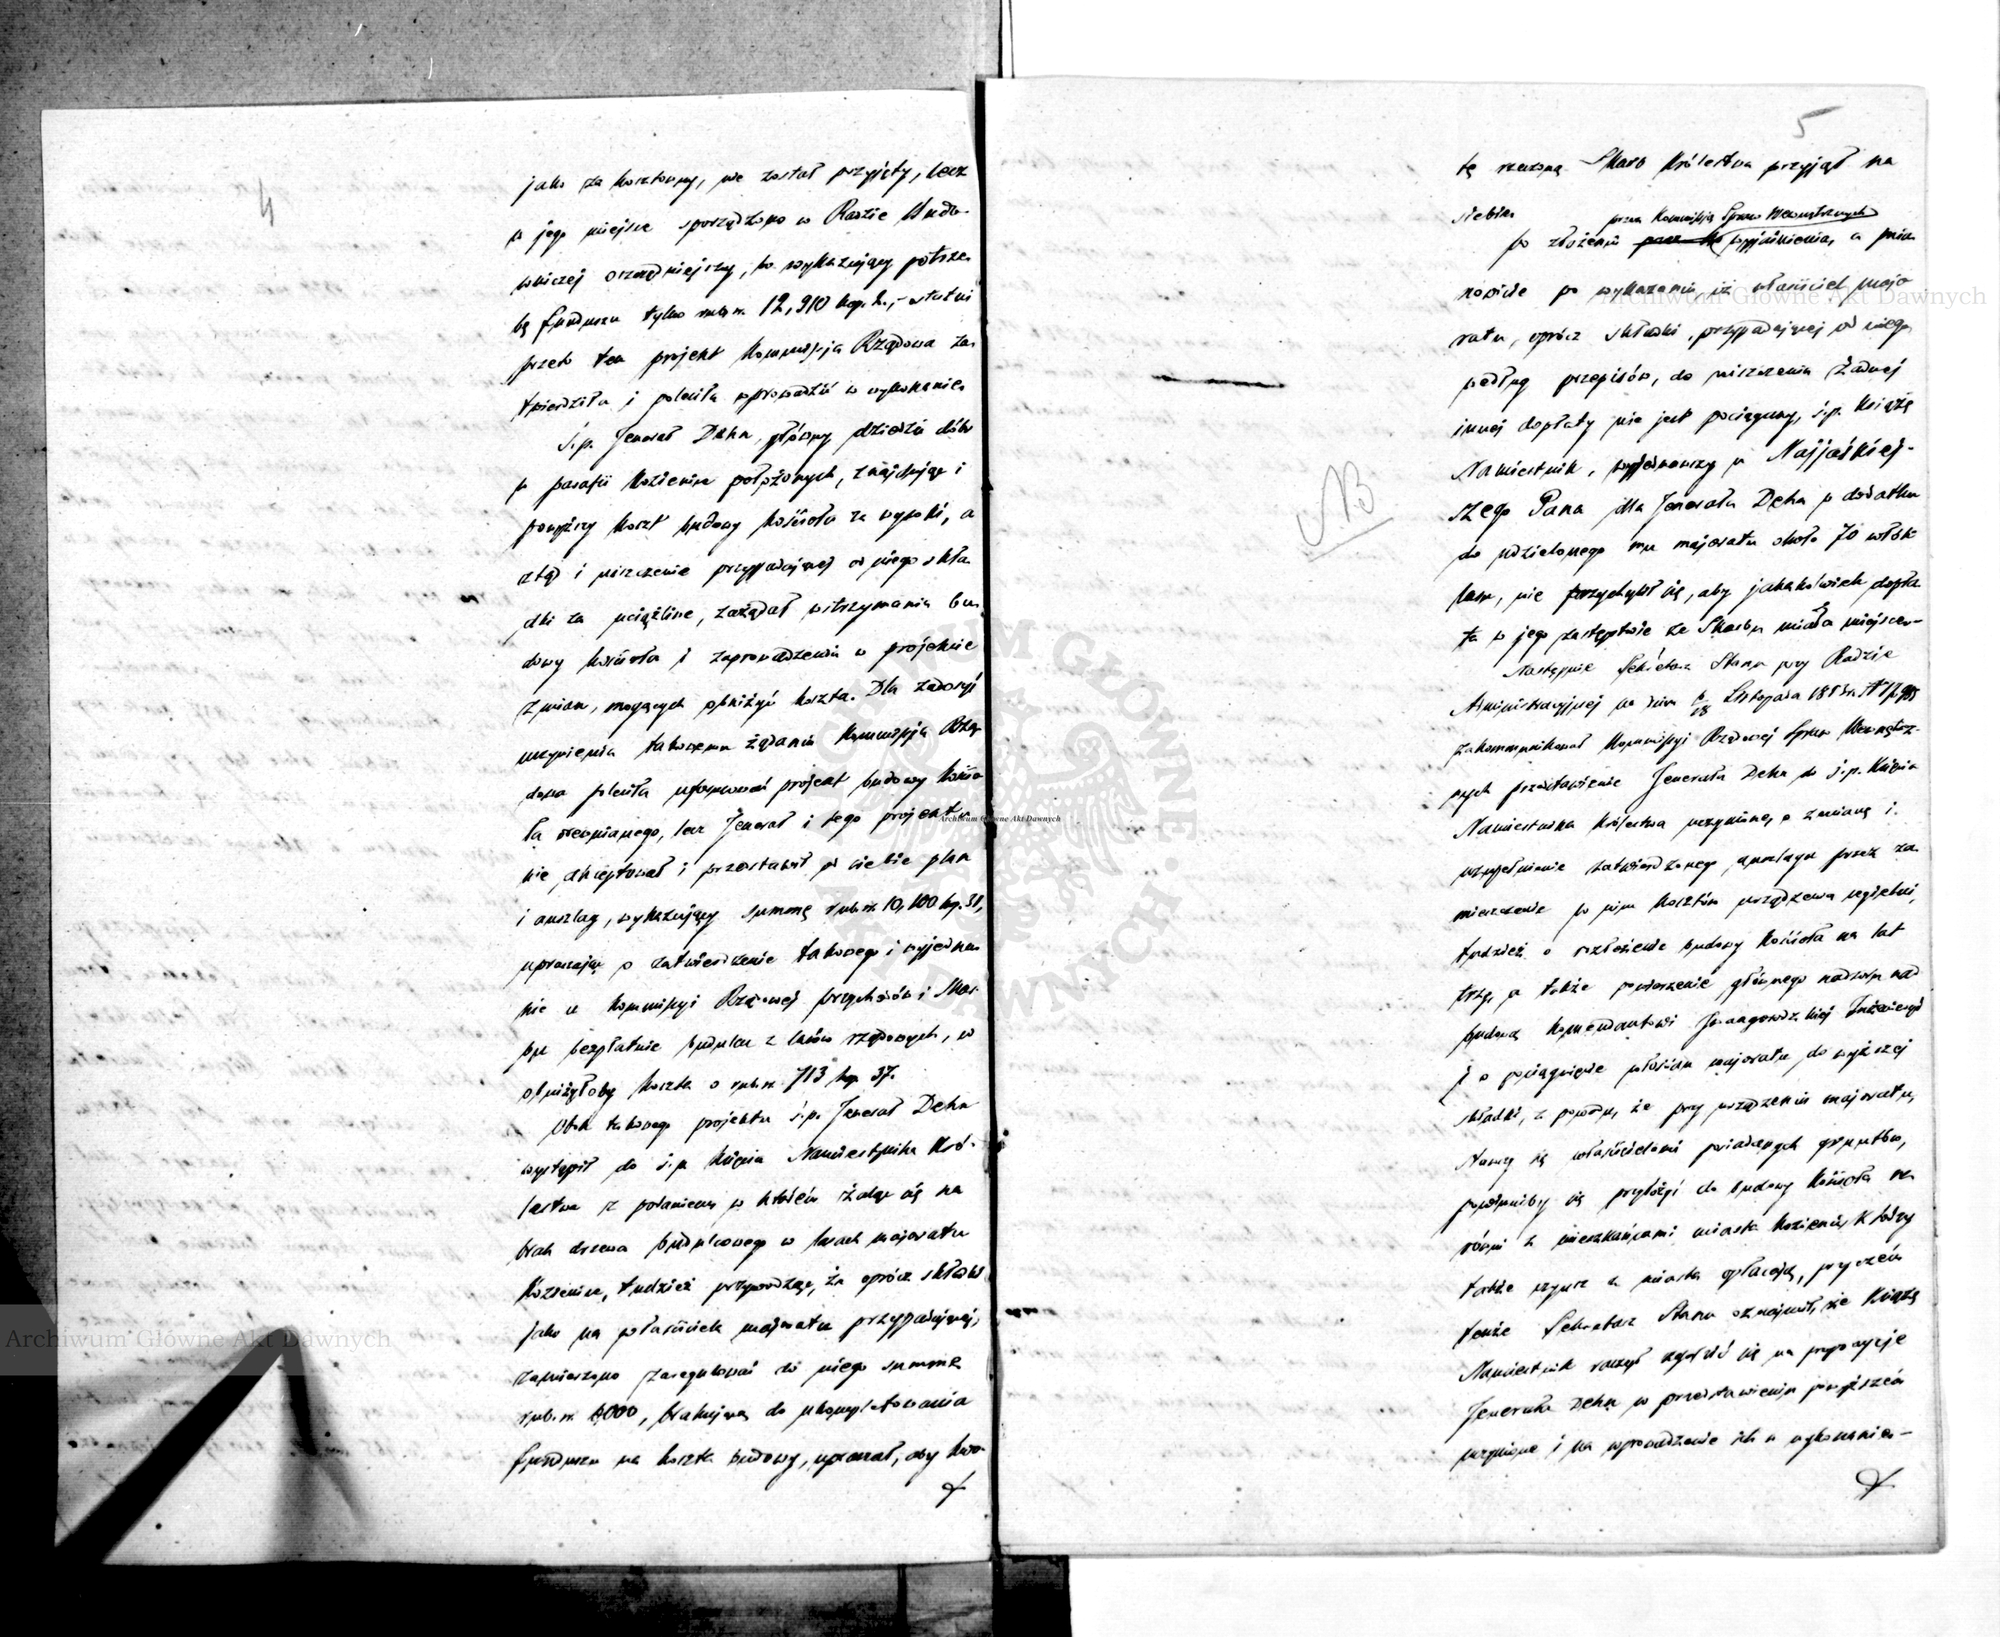 4
jako za kosztowny, nie został przyjęty, lecz
w jego miejsce sporządzono w Radzie Budo-
wniczej oszczędniejszy, bo wykazujący potrze-
bę funduszu tylko rub. sr. 12,910 kop. 2,- ostatni
przeto ten projekt Kommissja Rządowa za-
twierdziła i poleciła wprowadzić w wykonanie.
Ś.p. Jenerał Dehn, główny dziedzic dóbr
w parafii Kozienice położonych, znajdując i
powyższy koszt budowy kościoła za wysoki, a
ztąd i uiszczenie przypadającej od niego skła-
dki za uciążliwe, zażądał wstrzymania bu-
dowy kościoła i zaprowadzenia w projekcie
zmian, mogących obniżyć koszta. Dla zadosyć
uczynienia takowemu żądaniu Kommissja Rzą-
dowa poleciła uformować projekt budowy kościo-
ła drewnianego, lecz Jenerał i tego projektu
nie akceptował i przedstawił od siebie plan
i anszlag, wykazujący summę rub. sr. 10,100 kop. 31,
upraszając o zatwierdzenie takowego i wyjedna-
nie u Kommissyi Rządowej Przychodów i Skar-
bu bezpłatnie budulcu z lasów rządowych, co
obniżyłoby koszta o rub. sr. 713 kop. 37.
Obok takowego projektu ś.p. Jenerał Dehn
wystąpił do ś.p. Księcia Namiestnika Kró-
lestwa z podaniem, w którém żaląc się na
brak drzewa budulcowego w lasach majoratu
Kozienice, tudzież przywodząc, że oprócz składki
jako na właściciela majoratu przypadającej,
zamierzono zaregulować do niego summę
rub. sr. 4,000, brakującą do ukompletowania
funduszu na koszta budowy, upraszał, aby kwo-
5
tę rzeczoną Skarb Królestwa przyjął na
siebie.
przez Kommissją Spraw Wewnętrznych
Po złożeniu wyjaśnienia, a mia-
nowicie po wykazaniu, iż właściciel majo-
ratu, oprócz składki, przypadającej od niego
według przepisów, do uiszczenia żadnej
innej dopłaty nie jest pociągany, ś.p. Książę
Namiestnik, wyjednawszy u Najjaśniej-
szego Pana dla Jenerała Dehn w dodatku
do udzielonego mu majoratu około 70 włók
lasu, nie przychylił się, aby jakakolwiek dopła-
ta w jego zastępstwie ze Skarbu miała miejsce.-
NB
Następnie Sekretarz Stanu przy Radzie
Administracyjnej na dniu Listopada
zakommunikował Kommissyi Rządowej Spraw Wewnętrz-
nych przedstawienie Jenerała Dehn do ś.p. Księcia
Namiestnika Królestwa uczynione, o zmianę i
uzupełnienie zatwierdzonego anszlagu przez za-
mieszczenie w nim kosztów urządzenia cegielni,
tudzież o rozłożenie budowy kościoła na lat
trzy, a także powierzenie głównego nadzoru nad
budową Komendantowi Iwangorodzkiej Inżenieryi
i o pociągnięcie włościan majoratu do wyższej
składki, z powodu, że przy urządzeniu majoratu,
stawszy się właścicielami posiadanych gruntów,
powinniby się przyłożyć do budowy kościoła na
równi z mieszkańcami miasta Kozienic, którzy
także czynsz z miasta opłacają, przyczém
tenże Sekretarz Stanu oznajmił, że Książę
Namiestnik raczył zgodzić się na propozycje
Jenerała Dehn w przedstawieniu powyższém
uczynione i na wprowadzenie ich w wykonanie.-
Archiwum Główne Akt Dawnych
Archiwum Główne Akt Dawnych
Archiwum Główne Akt Dawnych
ARCHIWUM GŁÓWNE AKT DAWNYCH